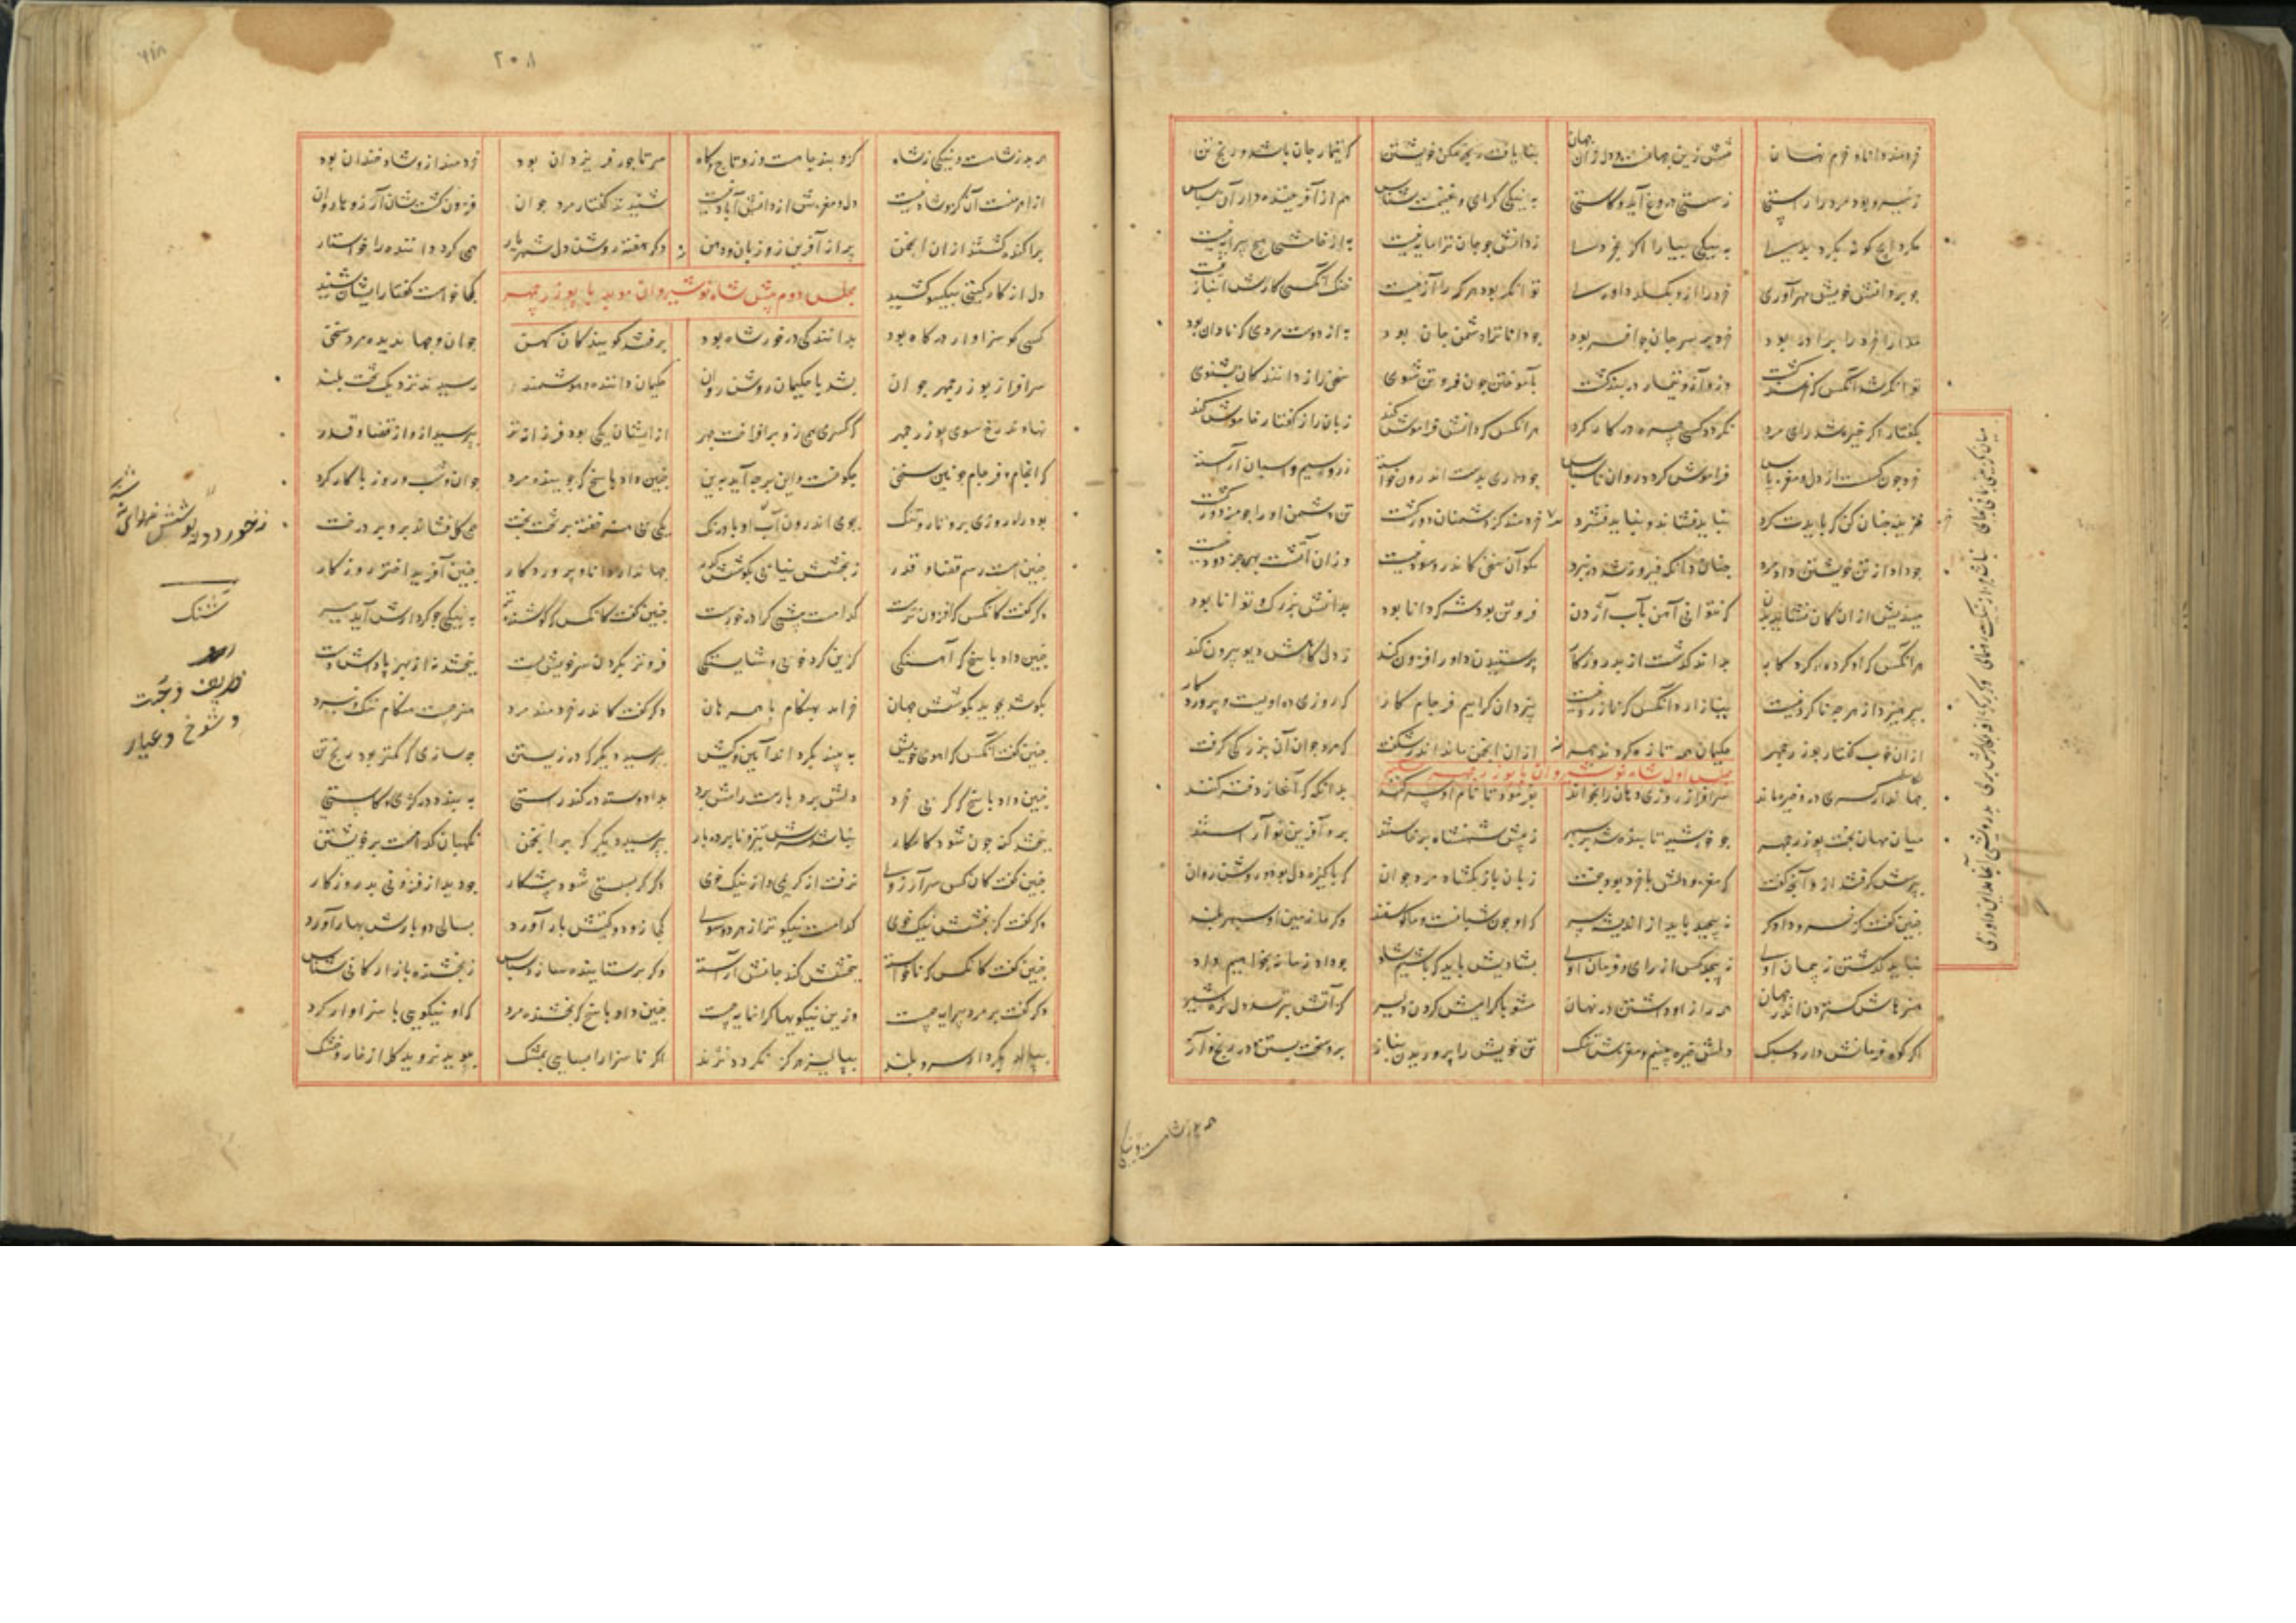 خردمند و دانا و خرم نهان تنش زین جهانست و دل زان جهان بنایافت رنجه مکن خویشتن که تیمار جان باشد و رنج تن
ز نیرو بود مرد را راستی ز سستی دروغ آید و کاستی به نیکی گرای و غنیمت شناس هم از آفریننده دار آن سپاس
مگرد ایچ گونه بگرد بدی به نیکی بیارا اگر بخردی ز دانش چو جان ترا مایه نیست به از خامشی هیچ پیرایه نیست
چو بر دانش خویش مهر آوری خرد را ز تو بگسلد داوری توانگر بود هر که را آز نیست خنک آنکسی کازش انباز نیست
مدارا خرد را برادر بود خرد بر سر جان چو افسر بود چو دانا ترا دشمن جان بود به از دوست مردی که نادان بود
توانگر شد آنکس که خرسند گشت وزو آز و تیمار در بند گشت بآموختن چون فروتن شوی سخن را ز دانندگان بشنوی
بگفتار اگر خیره شد رای مرد نگردد کسی چیره در کارکرد هر آنکس که دانش فراموش کند زبان را ز گفتار خاموش کند
خرد چون گسست از دل و مغز پاس فراموش کرد در روان ناسپاس چو داری بدست اندرون خواسته زر و سیم و اسبان آراسته
هزینه چنان کن که بایدت کرد نباید فشاند و نباید فشرد خردمند کز دشمنان دور گشت تن دشمن او را چو مزدور گشت
چو داد از تن خویشتن داد مرد چنان دان که فیروز شد در نبرد مگو آن سخن کاندرو سود نیست وزان آتشت بهره جز دود نیست
میندیش از آن کان نشاید بدن که نتوانی آهن بآب آژدن فروتن بود شه که دانا بود بدانش بزرگ و توانا بود
هر آنکس که او کرده کردگار بداند گذشت از بد روزگار پرستیدن داور افزون کند ز دل کاهش دیو بیرون کند
بپرهیزد از هر چه ناکردنیست نیازارد آنکس که نازردنیست بیزدان گراییم فرجام کار که روزی ده اویست و پروردگار
ازان خوب گفتار بوزرجمهر حکیمان همه تازه کردند چهر ازان انجمن ماند اندر شگفت که مرد جوان آن بزرگی گرفت
مجلس اول شاه نوشیروان با بوزرجمهر
جهاندار کسری درو خیره ماند سرافراز روزی دهان را بخواند بفرمود تا نام او سر کنند بدانگه که آغاز دفتر کنند
میان مهان بخت بوزرجمهر چو خورشید تابنده شد بر سپهر ز پیش شهنشاه برخاستند برو آفرین نو آراستند
بپرسش گرفتند از آنچ گفت که مغز و دلش با خرد بود جفت زبان باز بگشاد مرد جوان که پاکیزه دل بود و روشن روان
چنین گفت کز خسرو دادگر نپیچید باید از اندیشه سر که او چون شبانست و ما گوسفند وگر ما زمین او سپهر بلند
نباید گذشتن ز پیمان اوی نه پیچد کس از رای و فرمان اوی بشادیش باید که باشیم شاد چو داد زمانه بخواهیم داد
هنرهاش گستردن اندر جهان همه راز او داشتن در نهان مشو با گرامیش کردن دلیر کز آتش بترسد دل نره شیر
اگر کوه فرمانش دارد سبک دلش خیره بینم و مغزش تنک تن خویش را پروریدن بناز برو سخت بستن در رنج و آز
۲۰۸
همه بد ز شاهست و نیکی ز شاه کزو بند و چاهست و زو تاج و گاه سر تاجور فر یزدان بود خردمند ازو شاد و خندان بود
از اهرمنست آن کزو شاد نیست دل و مغزش از دانش آباد نیست شنیدند گفتار مرد جوان
پراکنده گشتند ازان انجمن پر از آفرین روز زبان و دهن دگر هفته روشن دل شهریار همی کرد داننده را خواستار
دل از کار گیتی بیکسو کشید کجا خواست گفتار ایشان شنید
مجلس دوم پیش شاه نوشیروان موبد با بوزرجمهر
کسی کو سزاوار درگاه بود بدانندگی در خور شاه بود برفتند گویندگان کهن جوان و جهاندیده مرد سخن
سرافراز بوزرجمهر جوان بشد با حکیمان روشن روان حکیمان داننده و هوشمند رسیدند نزدیک تخت بلند
نهادند رخ سوی بوزرجمهر که کسری همی زو برافراخت مهر از ایشان یکی بود فرزانه تر بپرسید ازو از قضا و قدر
که انجام و فرجام چونین سخن چگونست و این بر چه آید ببن چنین داد پاسخ که جوینده مرد جوان و شب و روز با کارکرد
بود راه روزی برو تار و تنگ بجوی اندرون آب او با درنگ یکی بی هنر خفته بر تخت بخت همی گل فشاند برو بر درخت
چنین است رسم قضا و قدر ز بخشش نیابی بکوشش گذر جهاندار دانا و پروردگار چنین آفرید اختر روزگار
دگر گفت کانکس که افزون ترست کدامست بیشی کرا در خورست چنین گفت کانکس که کوشنده تر به نیکی چو کردارش آید بسر
چنین داد پاسخ که آهستگی گزین کرد خوبی و شایستگی فزونتر بکردن سر خویش پست نبخشد نه از بهر پاداش دست
بکوشد بجوید بکوشش جهان خرامد بهنگام با همرهان دگر گفت کاندر خردمند مرد هنر چیست هنگام ننگ و نبرد
چنین گفت آنکس که آهوی خویش به بیند بگرداند آیین و کیش بپرسید دیگر که در زیستن چه سازی که کمتر بود رنج تن
چنین داد پاسخ که گر بی خرد دلش بردبارست رامش برد بداد و ستد در کند راستی به بندد در کژی و کاستی
ببخشد گنه چون شود کامگار نباشد سرش تیز و نابردبار بپرسید دیگر که بر انجمن نگهبان کدامست بر خویشتن
چنین گفت کان کس سر آرزوی نرفت از کریمی و از نیک خوی چو دید از فزونی بد روزگار
دگر گفت کز بخشش نیک خوی کدامست نیکوتر از هر دو سوی کجا زو دو گیتیش بار آورد بسالی دو بارش بهار آورد
چنین گفت کانکس که با خواسته ببخشش کند جانش آراسته وگر بر ستاینده سازد سپاس ز بخشنده بازارگانی شناس
دگر گفت بر مرد پیرایه چیست وزین نیکویها گرانمایه چیست چنین داد پاسخ که بخشنده مرد که او نیکویی با سزاوار کرد
ببالد بکردار سرو بلند ببالیز هرگز نگردد نژند اگر ناسزا را بمشک بپوید نروید گل از خار خشک
شنگ
ظریف
و شوخ و عیار